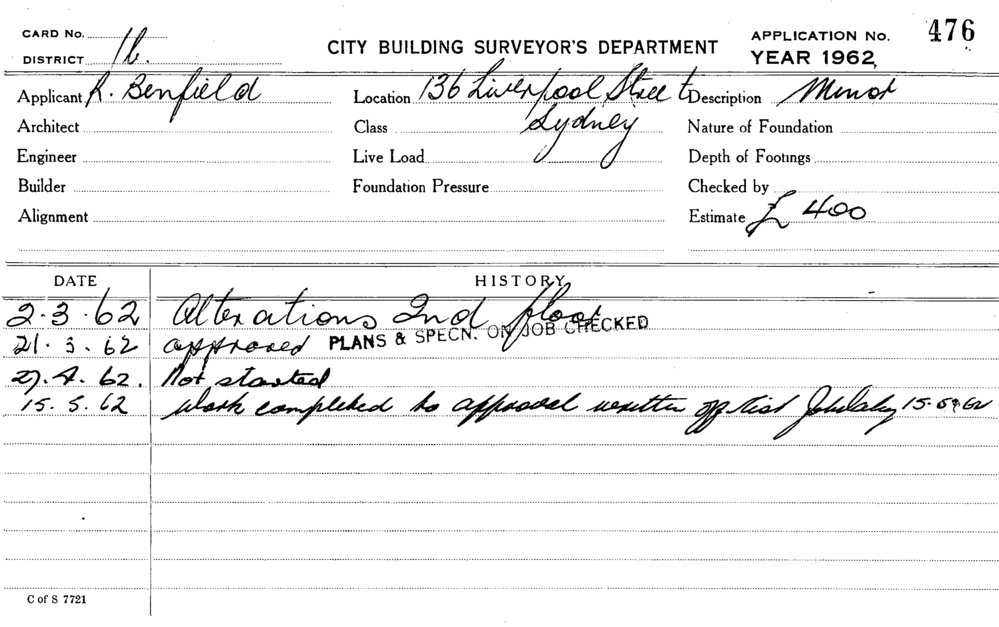 CARD No.
CITY BUILDING SURVEYOR'S DEPARTMENT
APPLICATION No. 476
DISTRICT 1b.
YEAR 1962
Applicant R. Benfield Location 136 Liverpool Street Description Minor
Sydney
Architect Class Nature of Foundation
Engineer Live Load Depth of Footings
Builder Foundation Pressure Checked by
Alignment Estimate £ 400
DATE HISTORY
2.3.62 Alterations 2nd floor
21.3.62 approved PLANS & SPECN. ON JOB CHECKED
27.4.62. Not started
15.5.62 Work completed to approval written off list 15.5.62
C of S 7721